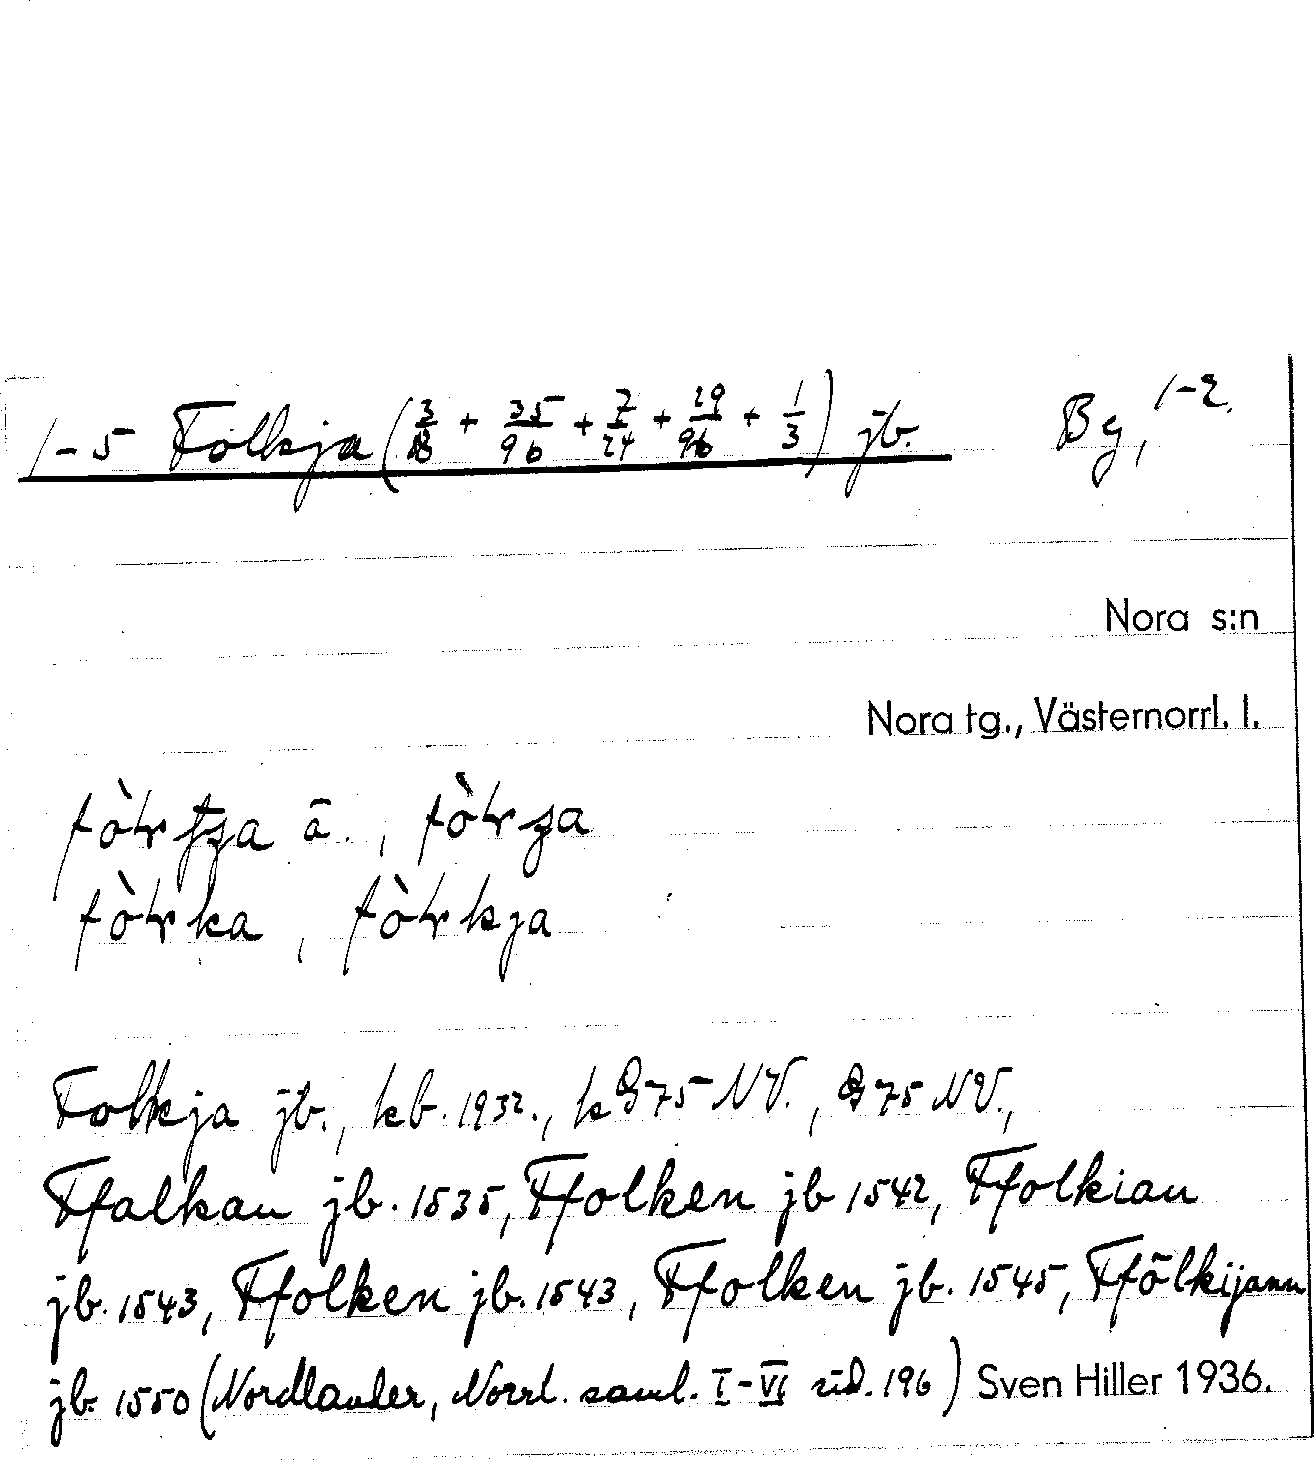 1-5 Folkja (3/8 + 35/96 + 7/24 + 29/96 + 1/3) jb. By, 1-2.
Nora s:n
Nora tg., Västernorrl. l.
Folkja jb., kb. 1932., k G75 NV., G 75 NV.,
Ffalkan jb. 1535, Ffolken jb 1542, Ffolkian
jb. 1543, Ffolken jb. 1543, Ffolken jb. 1545, Ffölkijann
jb. 1550 (Nordlander, Norrl. saml. I-VI sid. 196) Sven Hiller 1936.